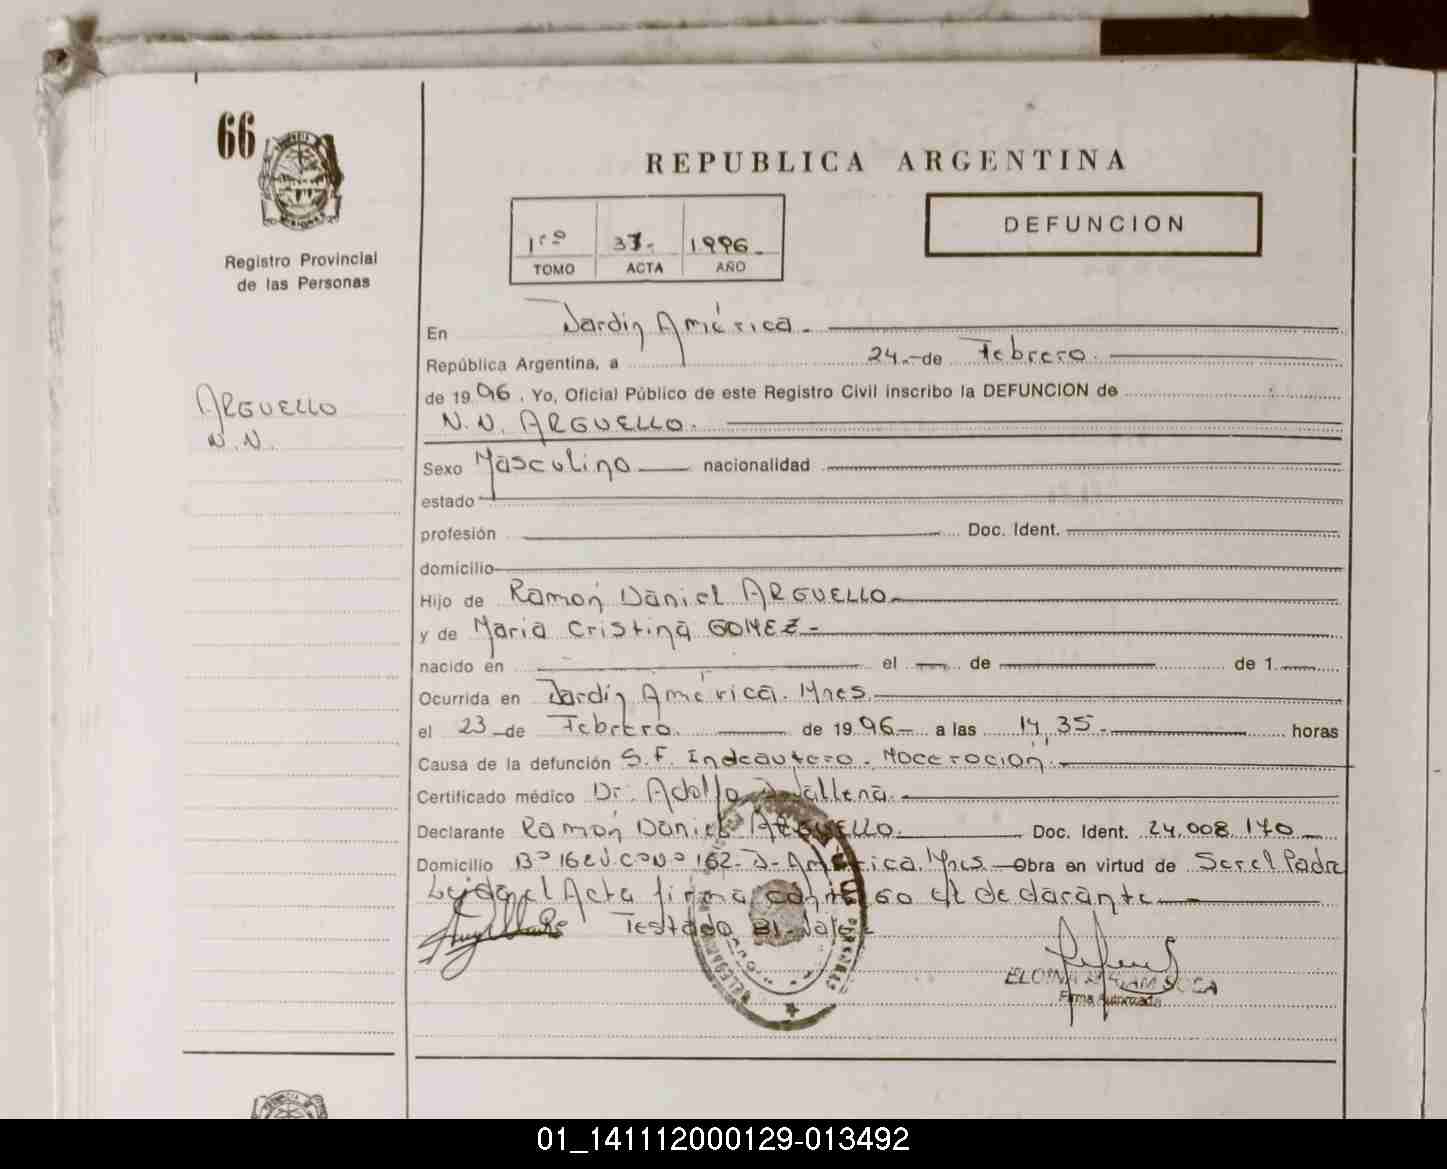 66
Registro Provincial
de las Personas
ARGUELLO
N.N.
REPUBLICA ARGENTINA
DEFUNCION
1ro 37- 1996-
TOMO ACTA AÑO
En Jardín América.-
República Argentina, a 24.- de Febrero.
de 1996. Yo, Oficial Público de este Registro Civil inscribo la DEFUNCION de
N.N. ARGUELLO.
Sexo Masculino nacionalidad
estado
profesión Doc. Ident.
domicilio
Hijo de Ramón Daniel ARGUELLO.-
y de María Cristina GOMEZ-
nacido en el de de 1
Ocurrida en Jardín América. Mnes.
el 23 de Febrero. de 1996 a las 14,35- horas
Causa de la defunción S.F. Moceroción.-
Certificado médico Dr. Adolfo
Declarante Ramón Daniel ARGUELLO. Doc. Ident. 24.008.170
Domicilio Bº 162-J-América. Mnes. Obra en virtud de Ser el Padre
Leida el Acta firma conmigo el declarante
Testado
Firma Autorizada
01_141112000129-013492